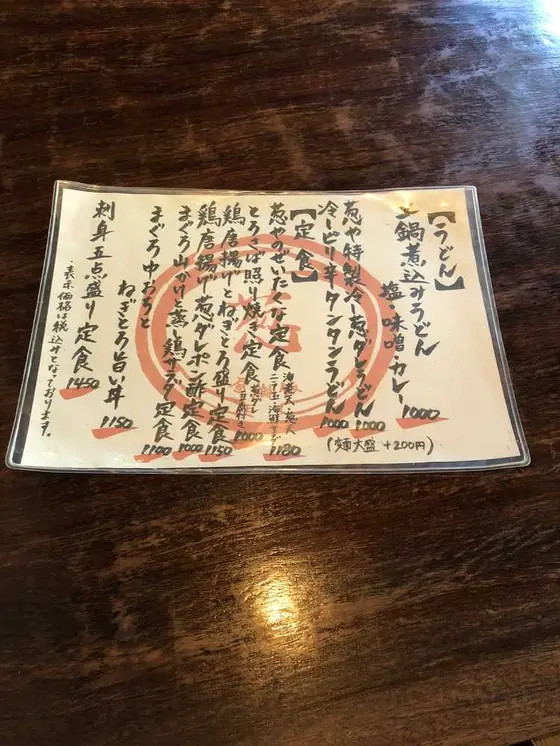 【うどん】
土鍋煮込みうどん
塩・味噌・カレー 1000
葱や特製冷し葱ダレうどん 1000
冷しピリ辛タンタンうどん 1000
(麺大盛 +200円)
【定食】
葱やのぜいたくな定食 1180
とろさば照り焼き定食 1000
鶏唐揚げとねぎとろ盛り定食 1150
鶏唐揚げ葱ダレポン酢定食 1000
まぐろ山かけと蒸し鶏サラダ定食 1100
まぐろ中おちと
ねぎとろ旨い丼 1150
刺身五点盛り定食 1450
・表示価格は税込みとなっております。